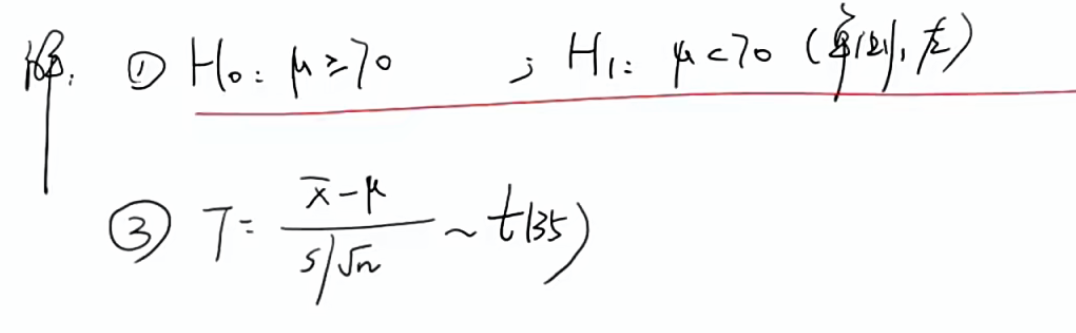 解: ① H₀: μ≥70 ; H₁: μ<70 (单侧, 左)
③ T = (x̄-μ)/(s/√n) ~ t(35)